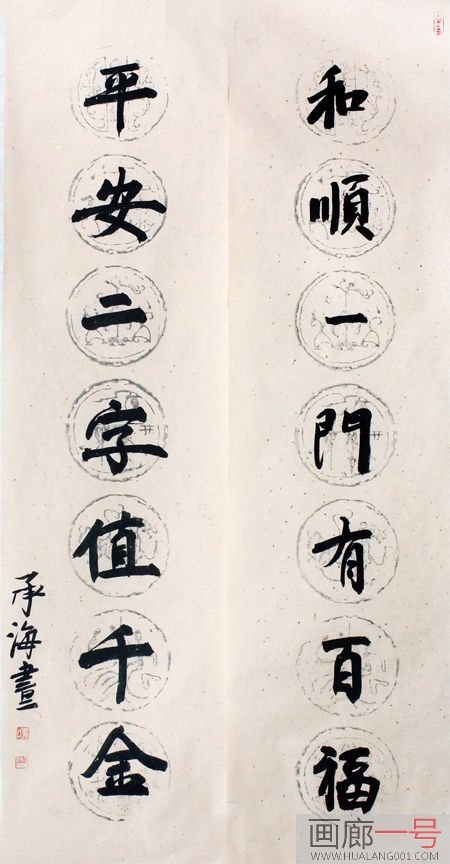 和順一門有百福
平安二字值千金
承海書
画廊一号
WWW.HUALANG001.COM